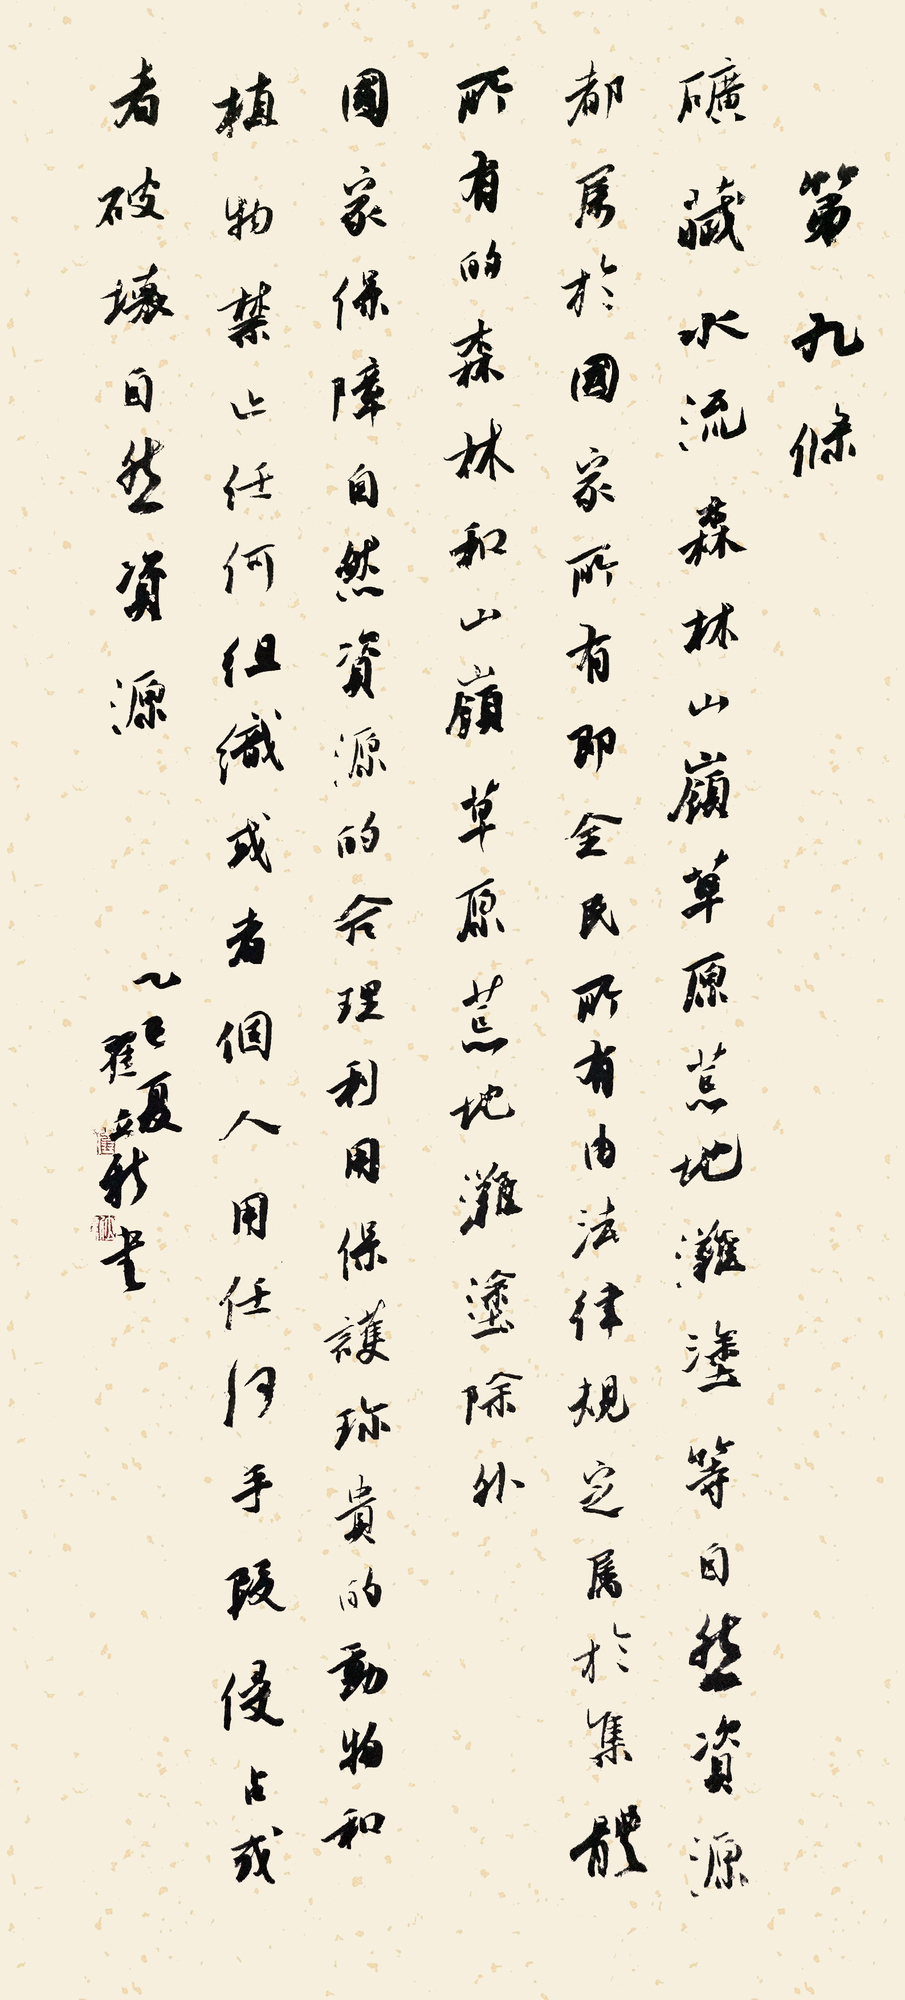 第九條
礦藏水流森林山嶺草原荒地灘塗等自然資源
都属於國家所有即全民所有由法律規定属於集體
所有的森林和山嶺草原荒地灘塗除外
國家保障自然資源的合理利用保護珍貴的動物和
植物禁止任何組織或者個人用任何手段侵占或
者破壞自然資源
乙巳夏
翟立新書